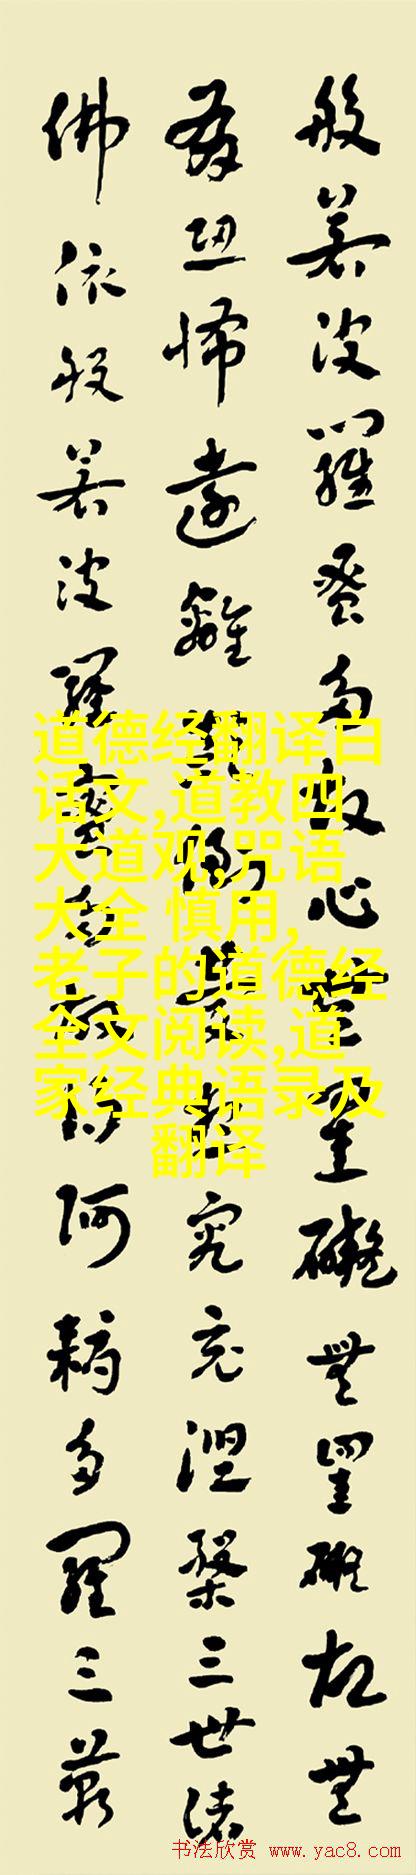 般若波羅蜜多故心無罣礙無罣礙故無
有恐怖遠離顛倒夢想究竟涅槃三世諸
佛依般若波羅蜜多故得阿耨多羅三藐
道德经翻译白
话文,道教四
大道观,咒语
大全 慎用,
老子的道德经
全文阅读,道
家经典语录及
翻译
书法欣赏 www.yac8.com